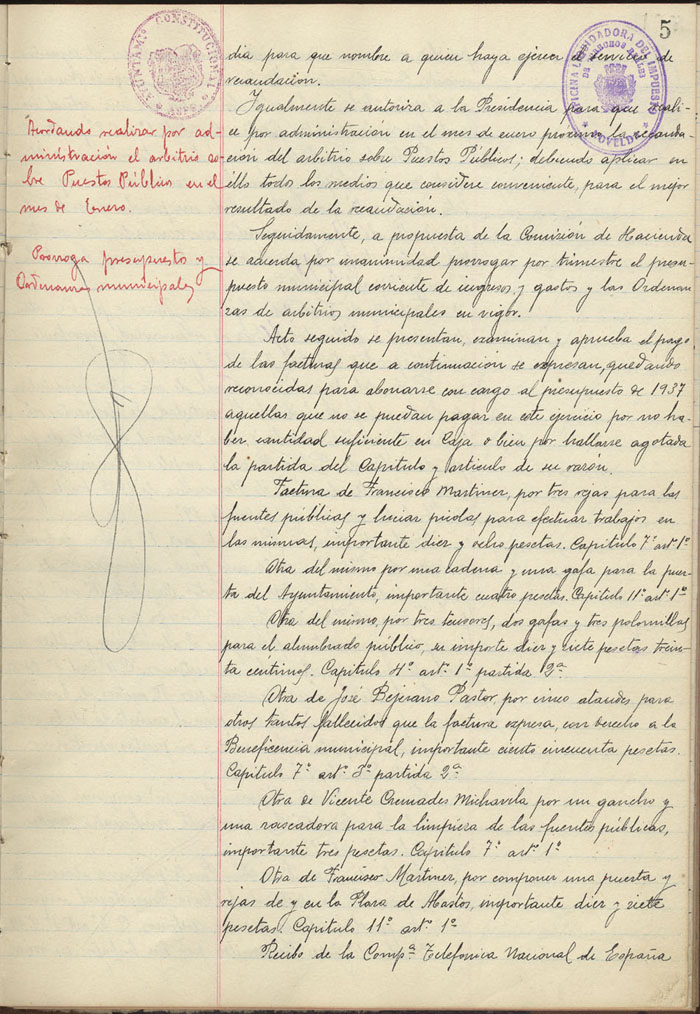 5
AYUNTAMTO CONSTITUCIONAL
ASPE
OFICINA LIQUIDADORA DEL IMPUESTO
DE DERECHOS REALES
NOVELDA
Acordando realizar por ad-
ministración el arbitrio so-
bre Puestos Públicos en el
mes de Enero.
Prorroga presupuestos y
Ordenanzas municipales
dia para que nombre a quien haya ejercer el servicio de
recaudación.
Igualmente se autoriza a la Presidencia para que reali-
ce por administración en el mes de enero proximo la recauda-
ción del arbitrio sobre Puestos Públicos; debiendo aplicar en
ello todos los medios que considere conveniente, para el mejor
resultado de la recaudasión.
Seguidamente, a propuesta de la Comisión de Hacienda
se acuerda por unanimidad prorrogar por trimestre el presu-
puesto municipal corriente de ingresos y gastos y las Ordenan-
zas de arbitrios municipales en vigor.
Acto seguido se presentan, examinan y aprueba el pago
de las facturas que a continuación se expresan, quedando
reconocidas para abonarse con cargo al presupuesto de 1937
aquellas que no se puedan pagar en este ejercicio por no ha-
ber cantidad suficiente en Caja o bien por hallarse agotada
la partida del Capitulo y articulo de su razón.
Factura de Francisco Martinez, por tres rejas para las
fuentes públicas y luciar picolas para efectuar trabajos en
las mismas, importante diez y ocho pesetas. Capitulo 7º artº 1º
Otra del mismo por una cadena y una gafa para la puer-
ta del Ayuntamiento, importante cuatro pesetas. Capitulo 11º artº 1º
Otra del mismo, por tres tensores, dos gafas y tres polomillas
para el alumbrado público, su importe diez y siete pesetas trein-
ta céntimos. Capitulo 4º artº 1º partida 2ª
Otra de José Bejerano Pastor, por cinco ataudes para
otros tantos fallecidos que la factura expresa, con derecho a la
Beneficencia municipal, importante ciento cincuenta pesetas.
Capitulo 7º artº 3º partida 2ª
Otra de Vicente Cremades Michavila por un gancho y
una rascadora para la limpieza de las fuentes públicas,
importante tres pesetas. Capitulo 7º artº 1º
Otra de Francisco Martinez, por componer una puerta y
rejas de y en la Plaza de Abastos, importante diez y siete
pesetas. Capitulo 11º artº 1º
Recibo de la Compª Telefonica Nacional de España